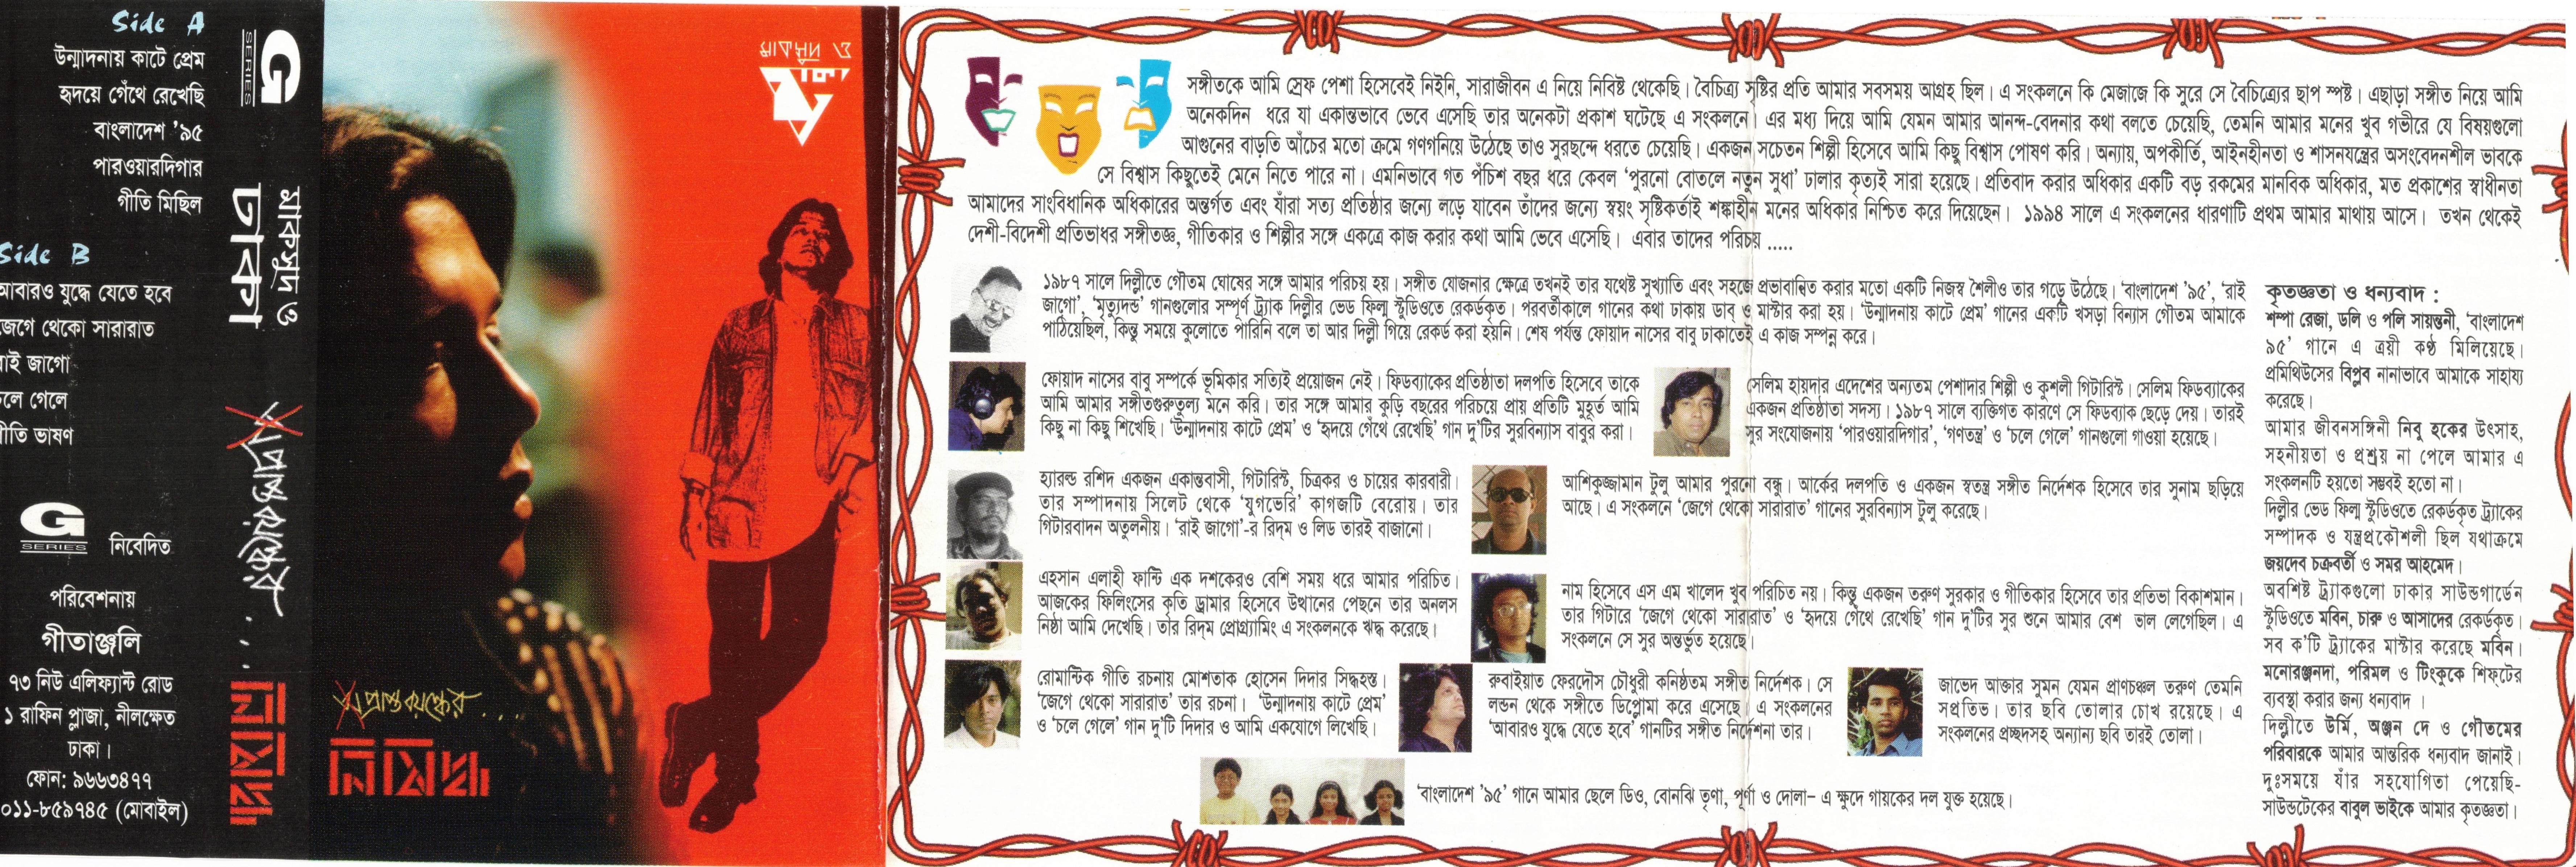 Side A
উন্মাদনায় কাটে প্রেম
হৃদয়ে গেঁথে রেখেছি
বাংলাদেশ '৯৫
পারওয়ারদিগার
গীতি মিছিল
Side B
আবারও যুদ্ধে যেতে হবে
জেগে থেকো সারারাত
রাই জাগো
চলে গেলে
গীতি ভাষণ
G
SERIES
নিবেদিত
পরিবেশনায়
গীতাঞ্জলি
৭৩ নিউ এলিফ্যান্ট রোড
১ রাফিন প্লাজা, নীলক্ষেত
ঢাকা।
ফোন: ৯৬৬৩৪৭৭
০১১-৮৫৯৭৪৫ (মোবাইল)
G
SERIES
মাকসুদ ও
ঢাকা
প্রাপ্তবয়স্কের . . .
নিষিদ্ধ
মাকসুদ ও
ঢাকা
প্রাপ্তবয়স্কের . . . .
নিষিদ্ধ
সঙ্গীতকে আমি স্রেফ পেশা হিসেবেই নিইনি, সারাজীবন এ নিয়ে নিবিষ্ট থেকেছি। বৈচিত্র্য সৃষ্টির প্রতি আমার সবসময় আগ্রহ ছিল। এ সংকলনে কি মেজাজে কি সুরে সে বৈচিত্র্যের ছাপ স্পষ্ট। এছাড়া সঙ্গীত নিয়ে আমি
অনেকদিন ধরে যা একান্তভাবে ভেবে এসেছি তার অনেকটা প্রকাশ ঘটেছে এ সংকলনে। এর মধ্য দিয়ে আমি যেমন আমার আনন্দ-বেদনার কথা বলতে চেয়েছি, তেমনি আমার মনের খুব গভীরে যে বিষয়গুলো
আগুনের বাড়তি আঁচের মতো ক্রমে গণগনিয়ে উঠেছে তাও সুরছন্দে ধরতে চেয়েছি। একজন সচেতন শিল্পী হিসেবে আমি কিছু বিশ্বাস পোষণ করি। অন্যায়, অপকীর্তি, আইনহীনতা ও শাসনযন্ত্রের অসংবেদনশীল ভাবকে
সে বিশ্বাস কিছুতেই মেনে নিতে পারে না। এমনিভাবে গত পঁচিশ বছর ধরে কেবল 'পুরনো বোতলে নতুন সুধা' ঢালার কৃত্যই সারা হয়েছে। প্রতিবাদ করার অধিকার একটি বড় রকমের মানবিক অধিকার, মত প্রকাশের স্বাধীনতা
আমাদের সাংবিধানিক অধিকারের অন্তর্গত এবং যাঁরা সত্য প্রতিষ্ঠার জন্যে লড়ে যাবেন তাঁদের জন্যে স্বয়ং সৃষ্টিকর্তাই শঙ্কাহীন মনের অধিকার নিশ্চিত করে দিয়েছেন। ১৯৯৪ সালে এ সংকলনের ধারণাটি প্রথম আমার মাথায় আসে। তখন থেকেই
দেশী-বিদেশী প্রতিভাধর সঙ্গীতজ্ঞ, গীতিকার ও শিল্পীর সঙ্গে একত্রে কাজ করার কথা আমি ভেবে এসেছি। এবার তাদের পরিচয় .....
১৯৮৭ সালে দিল্লীতে গৌতম ঘোষের সঙ্গে আমার পরিচয় হয়। সঙ্গীত যোজনার ক্ষেত্রে তখনই তার যথেষ্ট সুখ্যাতি এবং সহজে প্রভাবান্বিত করার মতো একটি নিজস্ব শৈলীও তার গড়ে উঠেছে। 'বাংলাদেশ '৯৫', 'রাই
জাগো', 'মৃত্যুদন্ড' গানগুলোর সম্পূর্ণ ট্র্যাক দিল্লীর ভেড ফিল্ম স্টুডিওতে রেকর্ডকৃত। পরবর্তীকালে গানের কথা ঢাকায় ডাব্ ও মাস্টার করা হয়। 'উন্মাদনায় কাটে প্রেম' গানের একটি খসড়া বিন্যাস গৌতম আমাকে
পাঠিয়েছিল, কিন্তু সময়ে কুলোতে পারিনি বলে তা আর দিল্লী গিয়ে রেকর্ড করা হয়নি। শেষ পর্যন্ত ফোয়াদ নাসের বাবু ঢাকাতেই এ কাজ সম্পন্ন করে।
ফোয়াদ নাসের বাবু সম্পর্কে ভূমিকার সত্যিই প্রয়োজন নেই। ফিডব্যাকের প্রতিষ্ঠাতা দলপতি হিসেবে তাকে
আমি আমার সঙ্গীতগুরুতুল্য মনে করি। তার সঙ্গে আমার কুড়ি বছরের পরিচয়ে প্রায় প্রতিটি মুহূর্ত আমি
কিছু না কিছু শিখেছি। 'উন্মাদনায় কাটে প্রেম' ও 'হৃদয়ে গেঁথে রেখেছি' গান দু'টির সুরবিন্যাস বাবুর করা।
সেলিম হায়দার এদেশের অন্যতম পেশাদার শিল্পী ও কুশলী গিটারিস্ট। সেলিম ফিডব্যাকের
একজন প্রতিষ্ঠাতা সদস্য। ১৯৮৭ সালে ব্যক্তিগত কারণে সে ফিডব্যাক ছেড়ে দেয়। তারই
সুর সংযোজনায় 'পারওয়ারদিগার', 'গণতন্ত্র' ও 'চলে গেলে' গানগুলো গাওয়া হয়েছে।
হ্যারল্ড রশিদ একজন একান্তবাসী, গিটারিস্ট, চিত্রকর ও চায়ের কারবারী।
তার সম্পাদনায় সিলেট থেকে 'যুগভেরি' কাগজটি বেরোয়। তার
গিটারবাদন অতুলনীয়। 'রাই জাগো'-র রিদ্‌ম ও লিড তারই বাজানো।
আশিকুজ্জামান টুলু আমার পুরনো বন্ধু। আর্কের দলপতি ও একজন স্বতন্ত্র সঙ্গীত নির্দেশক হিসেবে তার সুনাম ছড়িয়ে
আছে। এ সংকলনে 'জেগে থেকো সারারাত' গানের সুরবিন্যাস টুলু করেছে।
এহসান এলাহী ফান্টি এক দশকেরও বেশি সময় ধরে আমার পরিচিত।
আজকের ফিলিংসের কৃতি ড্রামার হিসেবে উত্থানের পেছনে তার অনলস
নিষ্ঠা আমি দেখেছি। তাঁর রিদ্‌ম প্রোগ্র্যামিং এ সংকলনকে ঋদ্ধ করেছে।
নাম হিসেবে এস এম খালেদ খুব পরিচিত নয়। কিন্তু একজন তরুণ সুরকার ও গীতিকার হিসেবে তার প্রতিভা বিকাশমান।
তার গিটারে 'জেগে থেকো সারারাত' ও 'হৃদয়ে গেঁথে রেখেছি' গান দু'টির সুর শুনে আমার বেশ ভাল লেগেছিল। এ
সংকলনে সে সুর অন্তর্ভুত হয়েছে।
রোমান্টিক গীতি রচনায় মোশতাক হোসেন দিদার সিদ্ধহস্ত।
'জেগে থেকো সারারাত' তার রচনা। 'উন্মাদনায় কাটে প্রেম'
ও 'চলে গেলে' গান দু'টি দিদার ও আমি একযোগে লিখেছি।
রুবাইয়াত ফেরদৌস চৌধুরী কনিষ্ঠতম সঙ্গীত নির্দেশক। সে
লন্ডন থেকে সঙ্গীতে ডিপ্লোমা করে এসেছে। এ সংকলনের
'আবারও যুদ্ধে যেতে হবে' গানটির সঙ্গীত নির্দেশনা তার।
জাভেদ আক্তার সুমন যেমন প্রাণচঞ্চল তরুণ তেমনি
সপ্রতিভ। তার ছবি তোলার চোখ রয়েছে। এ
সংকলনের প্রচ্ছদসহ অন্যান্য ছবি তারই তোলা।
'বাংলাদেশ '৯৫' গানে আমার ছেলে ডিও, বোনঝি তৃণা, পূর্ণা ও দোলা– এ ক্ষুদে গায়কের দল যুক্ত হয়েছে।
কৃতজ্ঞতা ও ধন্যবাদ :
শম্পা রেজা, ডলি ও পলি সায়ন্তনী, 'বাংলাদেশ
৯৫' গানে এ ত্রয়ী কণ্ঠ মিলিয়েছে।
প্রমিথিউসের বিপ্লব নানাভাবে আমাকে সাহায্য
করেছে।
আমার জীবনসঙ্গিনী নিবু হকের উৎসাহ,
সহনীয়তা ও প্রশ্রয় না পেলে আমার এ
সংকলনটি হয়তো সম্ভবই হতো না।
দিল্লীর ভেড ফিল্ম স্টুডিওতে রেকর্ডকৃত ট্র্যাকের
সম্পাদক ও যন্ত্রপ্রকৌশলী ছিল যথাক্রমে
জয়দেব চক্রবর্তী ও সমর আহমেদ।
অবশিষ্ট ট্র্যাকগুলো ঢাকার সাউন্ডগার্ডেন
স্টুডিওতে মবিন, চারু ও আসাদের রেকর্ডকৃত।
সব ক'টি ট্র্যাকের মাস্টার করেছে মবিন।
মনোরঞ্জনদা, পরিমল ও টিংকুকে শিফ্‌টের
ব্যবস্থা করার জন্য ধন্যবাদ ।
দিল্লীতে উর্মি, অঞ্জন দে ও গৌতমের
পরিবারকে আমার আন্তরিক ধন্যবাদ জানাই।
দুঃসময়ে যাঁর সহযোগিতা পেয়েছি-
সাউন্ডটেকের বাবুল ভাইকে আমার কৃতজ্ঞতা।